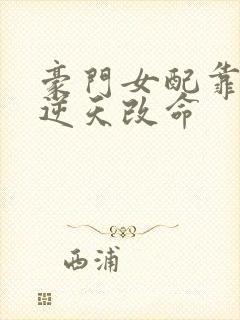 豪門女配靠
逆天改命
西浦